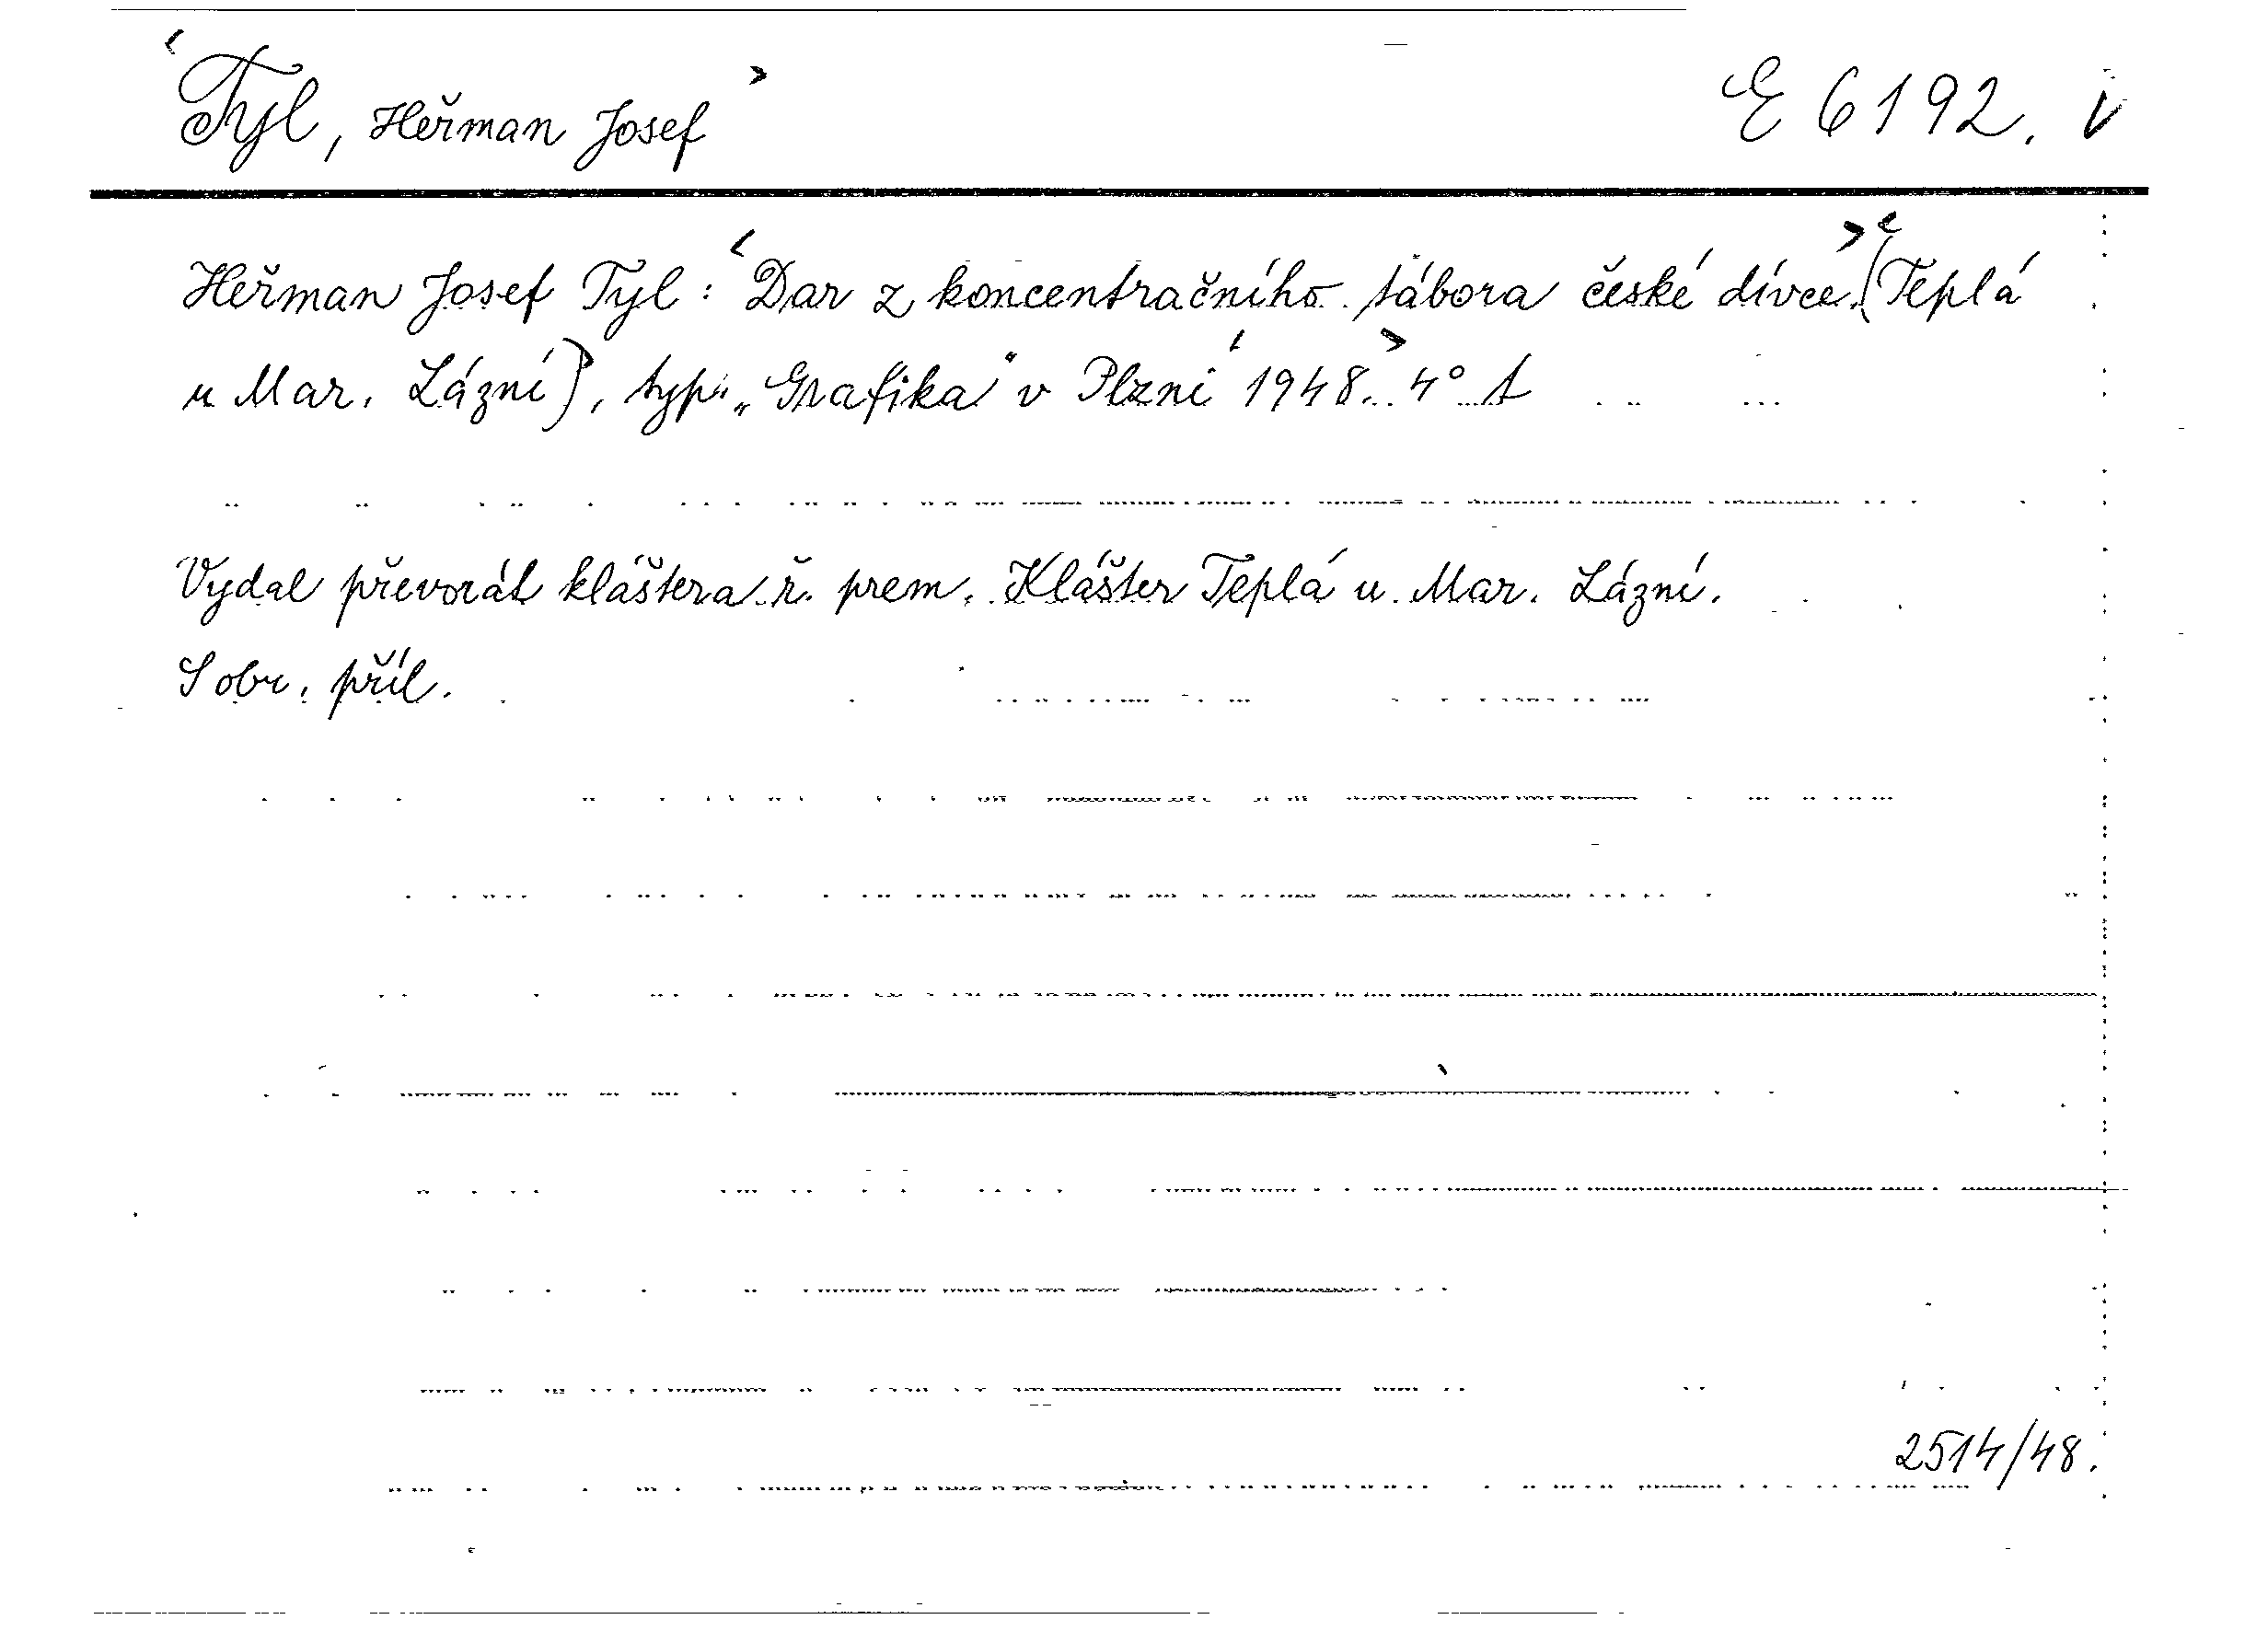 Tyl, Heřman Josef E 6192. V
Heřman Josef Tyl: Dar z koncentračního tábora české dívce. (Teplá
u Mar. Lázní), typ. „Grafika“ v Plzni 1948. 4°
Vydal převorát kláštera ř. prem. Klášter Teplá u Mar. Lázní.
S obr. příl.
2514/48.